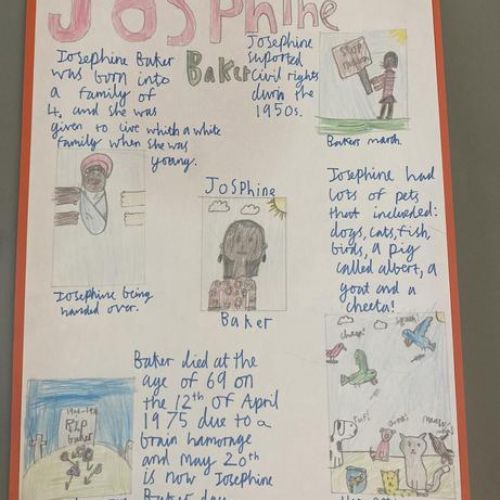 JOSPhine
Baker
Josephine Baker
was born into
a family of
4, and she was
given to live whith a white
family when she was
young.
Josephine
suported
civil rights
durin the
1950s.
Stop
Bakers march.
Josephine being
handed over.
JOSPhine
Baker
Josephine had
lots of pets
that inclueded:
dogs, cats, fish,
birds, a pig
called albert, a
goat and a
cheeta!
Baker died at the
age of 69 on
the 12th of April
1975 due to a
brain hamorage
and May 20th
is now Josephine
Baker day
RIP
baker